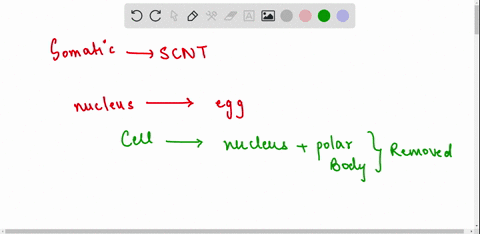 Somatic → SCNT
nucleus → egg
Cell → nucleus + polar Body } Removed